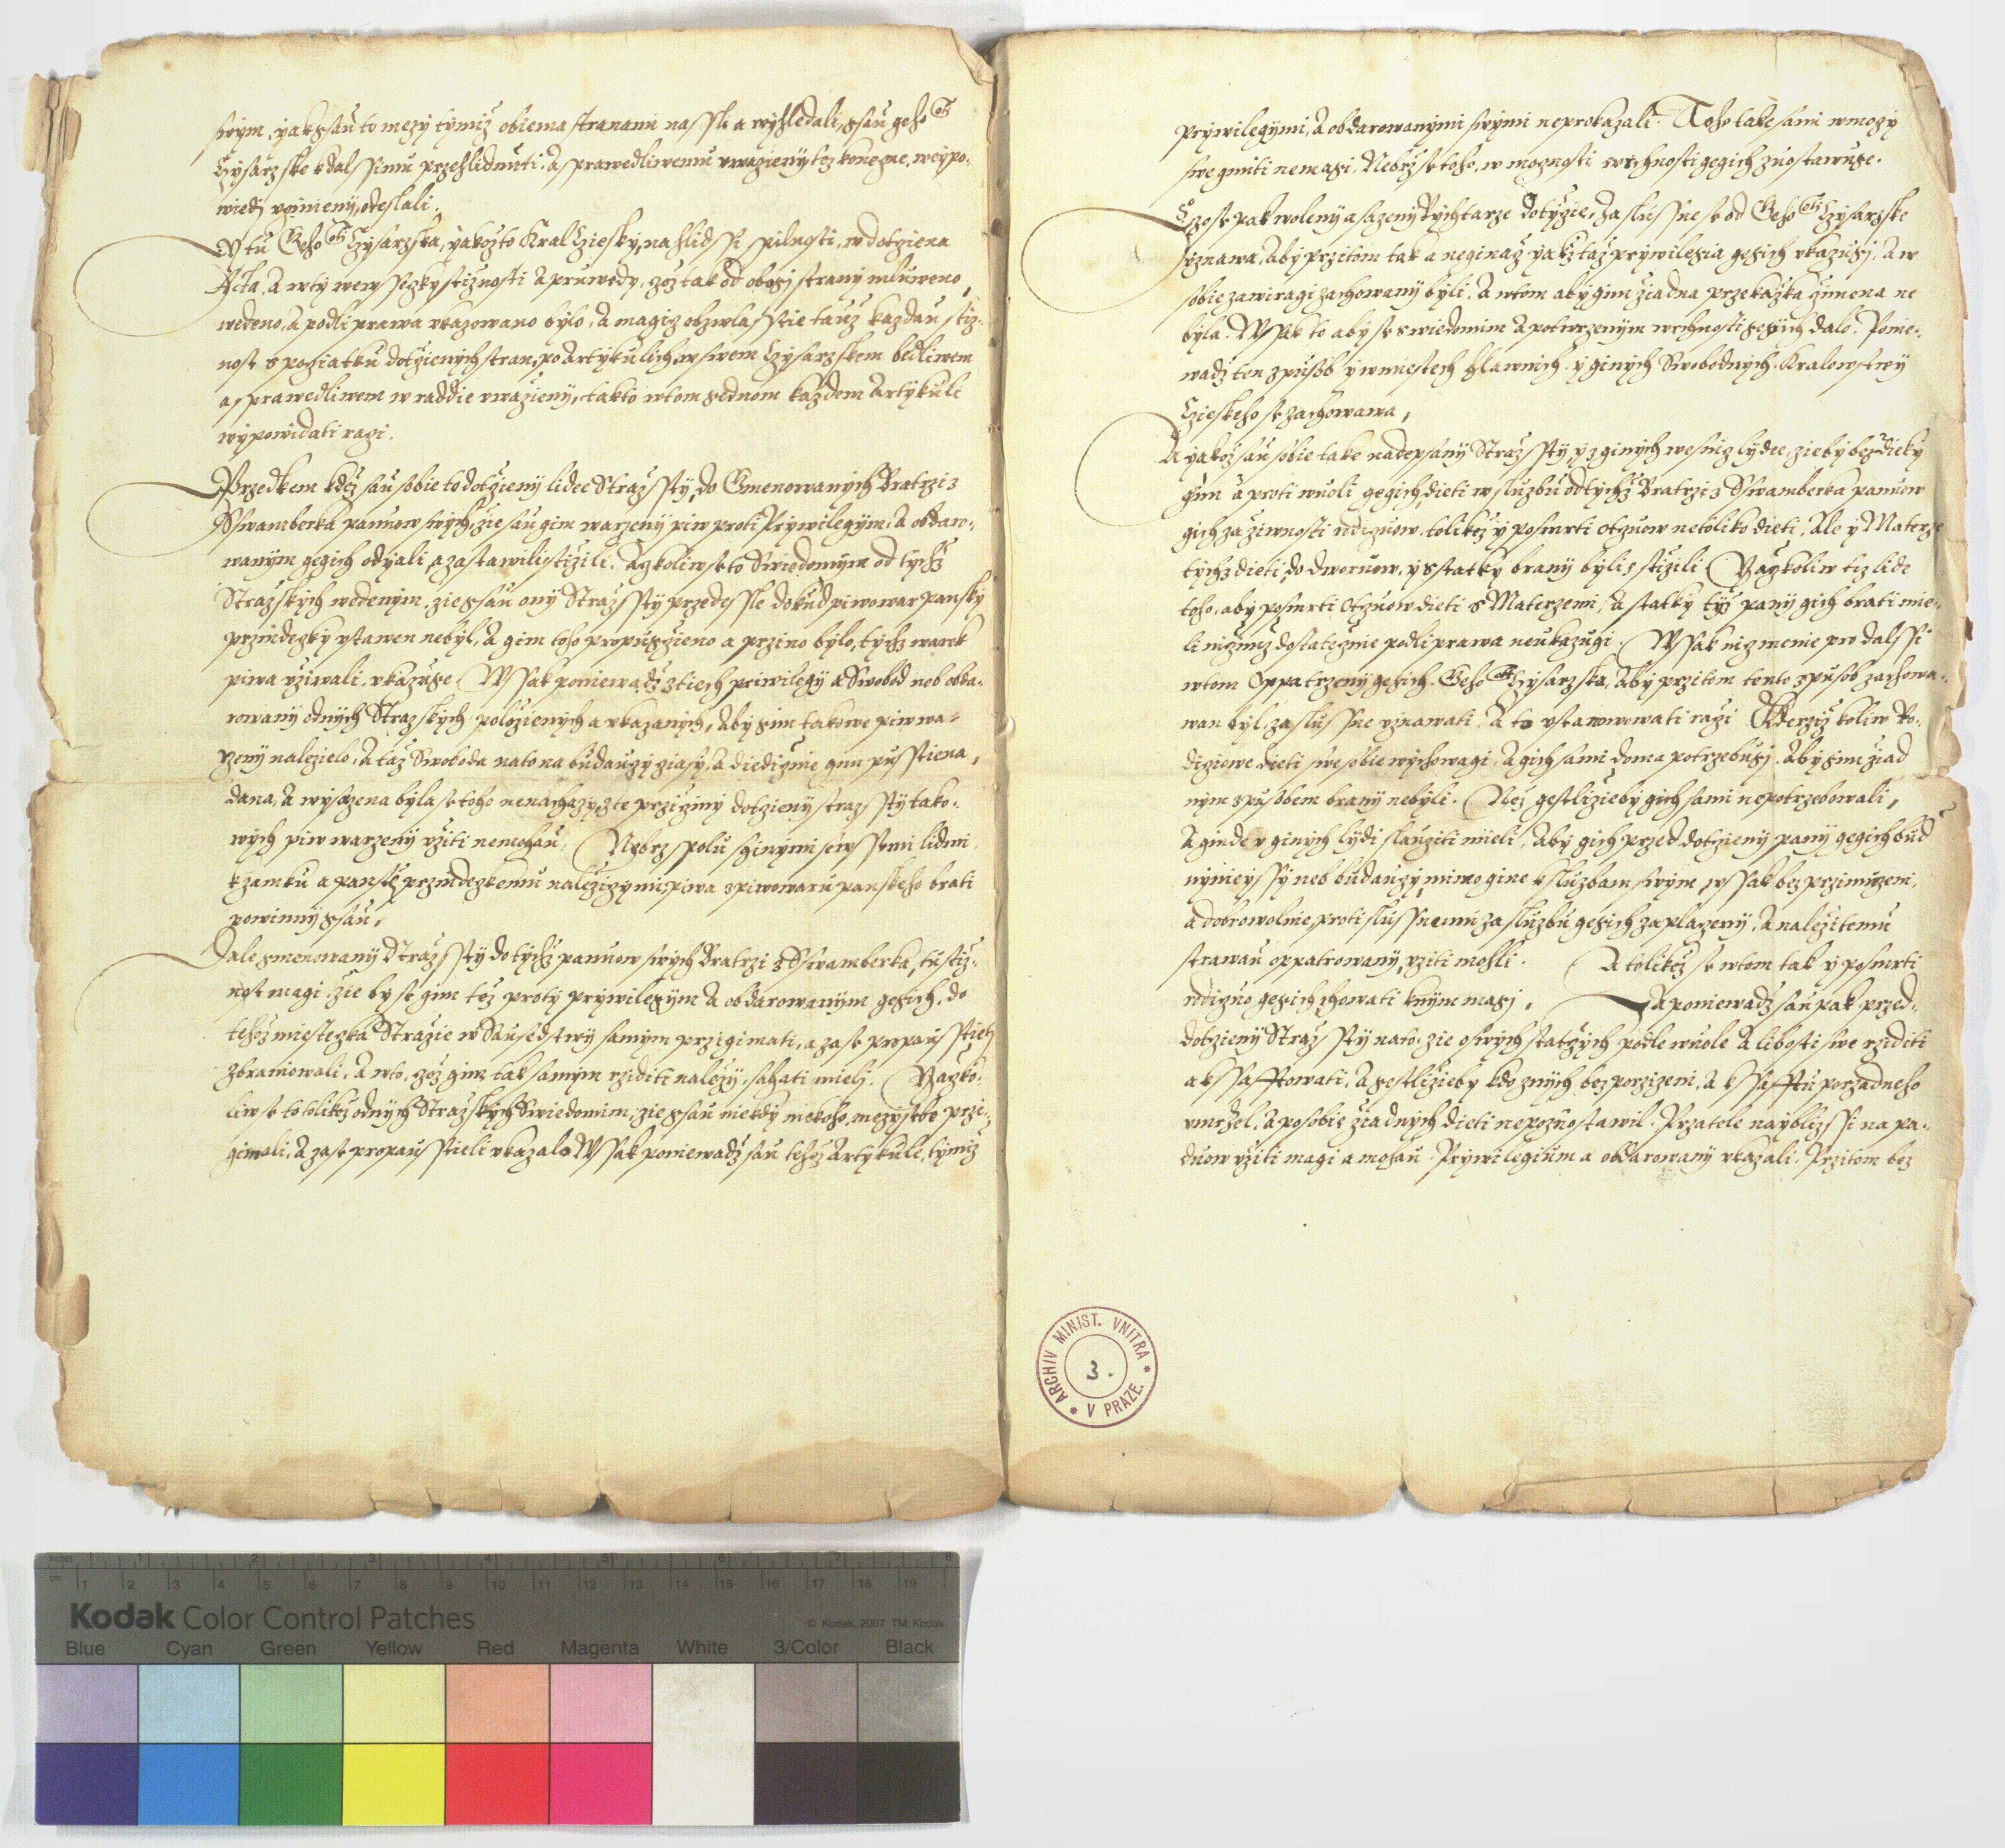 swym, yak ssau to mezy tymiz obiema stranami nassli a wyhledali, ssau geho Mti
Czysarzske k dalssimu przehlidnuti, A sprawedliwemu uwazieny, tez konezne, weypo-
wiedi uczinieny, odeslali.
Y tu Geho Mt Czysarzska, yakozto Kral Czesky, nahlidssi s pilnosti, w dotczena
Acta, A w ty wewssezky stiznosti A pruwody, czoz tak od obogi strany mluweno,
wedeno, A podli prawa ukazowano bylo, A magicz obzwlasstie tauz kazdau stiz-
nost s pocziatku dotczienych stran, po Artykulich, w swem Czysarzskem bedliwem
a sprawedliwem w raddie uwazieny, takto w tom gednom kazdem Artykuli
wypowidati razi.
Przedkem kdez sau sobie to dotczieny lidee Strazssty, do Gmenowanych Bratrzi z
Sswamberka panuow swych, zie sau gim warzeny piw proti Prywilegym, A obdaro-
wanym gegich odyali, a zastawili stizili. Aczkoliw se to Swiedomym od tychz
Strazskych wedenym, zie ssau ony Strazssty przedessle dokud piwowar pansky
przimdezky ustawen nebyl, A gim toho propusstieno a przino bylo, tychz warek
piwa uziwali, ukazuge. Wssak poniewadz z tiech priwilegy a Swobod neb obda-
rowany od nych Strazskych polozienych a ukazanych, Aby gim takowe piw wa-
rzeny nalezielo, A taz Swoboda na to na buduczy cziasy, A diediczne gim pusstiena,
dana, A wysazena byla se toho nenachazy, z te prziczyny dotczieny strazssty tako-
wych piw warzeny uziti nemohau, Nebrz spolu s ginymi sewssemi lidmi
k zamku a panstwi przimdezkemu nalezieczymi piwa z piwowaru panskeho brati
powinny ssau.
Dale gmenowany Strazssty do tychz panuow swych Bratrzi z Sswamberka, tu stiz-
nost magi, zie by se gim tez proty prywilegym A obdarowanym gegich, do
tehoz miestezka Strazie w Sausedstwy samym przigimati, a zase propausstieti
zbraniowali, A w to, czoz gim tak samym rziditi nalezy, sahati mieli. Yaczko-
liw se to tolikez od nych Strazskych Swiedomim, zie ssau niekdy niekoho mezy sebe przi-
gimali, A zase propausstieli ukazalo. Wssak poniewadz sau tehoz Artykule, tymiz
prywilegymi, A obdarowanymi swymi neprokazali. Toho take sami w moczy
swe giniti nemagi, Nebrz se toho, w moznosti wrchnosti gegich zuostawuge.
Czoz se pak woleny a sazeny Rychtarze dotycze, Za slussne se od Geho Mti Czysarzske
uznawa, Aby przi tom tak a neginacz yakz taz prywilegia gegich ukazugi, A w
sobie zawiragi zachowany byli, A w tom aby gim ziadna przekazka czinena ne
byla. Wssak to aby se s wiedomim A potwrzenym wrchnosti gegich dalo. Ponie-
wadz ten zpusob y w miestech hlawnich y ginych Swobodnych Kralowstwy
Czieskeho se zachowawa,
A yakoz sau sobie take nadepsany Strazssty, y z ginych wesnicz lydee, zieby bezdieky
gim a proti wuoli gegich, dieti w sluzbu od tychz Bratrzi z Sswamberka panuow
gich za ziwnosti rodiczuow, tolikez y po smrti otczuow netoliko dieti, Ale y Materze
tychz dieti, do dworuow, y s statky brany byli, stizili. Yaczkoliw tiz lide
toho, aby po smrti Otczuow dieti s Materzemi, A statky tyz pany gich brati mie-
li niczimz dostateczne podli prawa neukazugi. Wssak niczmenie pro dalssi
w tom Oppatrzeny gegich, Geho Mt Czysarzska, Aby przi tom tento zpusob zachowa-
wan byl, za slussne uznawati, A to ustanowowati razi. Kterzizkoliw Ro-
diczowe dieti swe sobie wychowagi, A gich sami doma potrzebugi, Aby gim ziad
nym zpusobem brany nebyli. Nez gestlizieby gich sami nepotrzebowali,
A ginde u ginych lydi slauziti mieli, Aby gich przed dotczieny pany gegich bud
nyniegssy neb budauczy, mimo gine k sluzbam swym, wssak bez przinuczeni,
a dobrowolnie, proti slussnemu za sluzbu gegich zaplaczeny, A nalezitemu
strawau oppatrowany, uziti mohli. A tolikez se w tom tak y po smrti
rodiczuo gegich, chowati k nym magi, A poniewadz sau pak przed-
dotczieny Strazssty na to, zie o swych statczych podle wuole A libosti swe rziditi
a kssafftowati, A gestlizieby kdo z nych bez porzizeni, A kssafftu porzadneho
umrzel, A po sobie ziadnych dieti nepozuostawil. Przatele nayblizssi na pa-
duow uziti magi a mohau. Prywilegium a obdarowany ukazali. Przi tom bez
ARCHIV MINIST. VNITRA * V PRAZE. *
3.
Kodak Color Control Patches
© Kodak, 2007 TM: Kodak
Blue Cyan Green Yellow Red Magenta White 3/Color Black